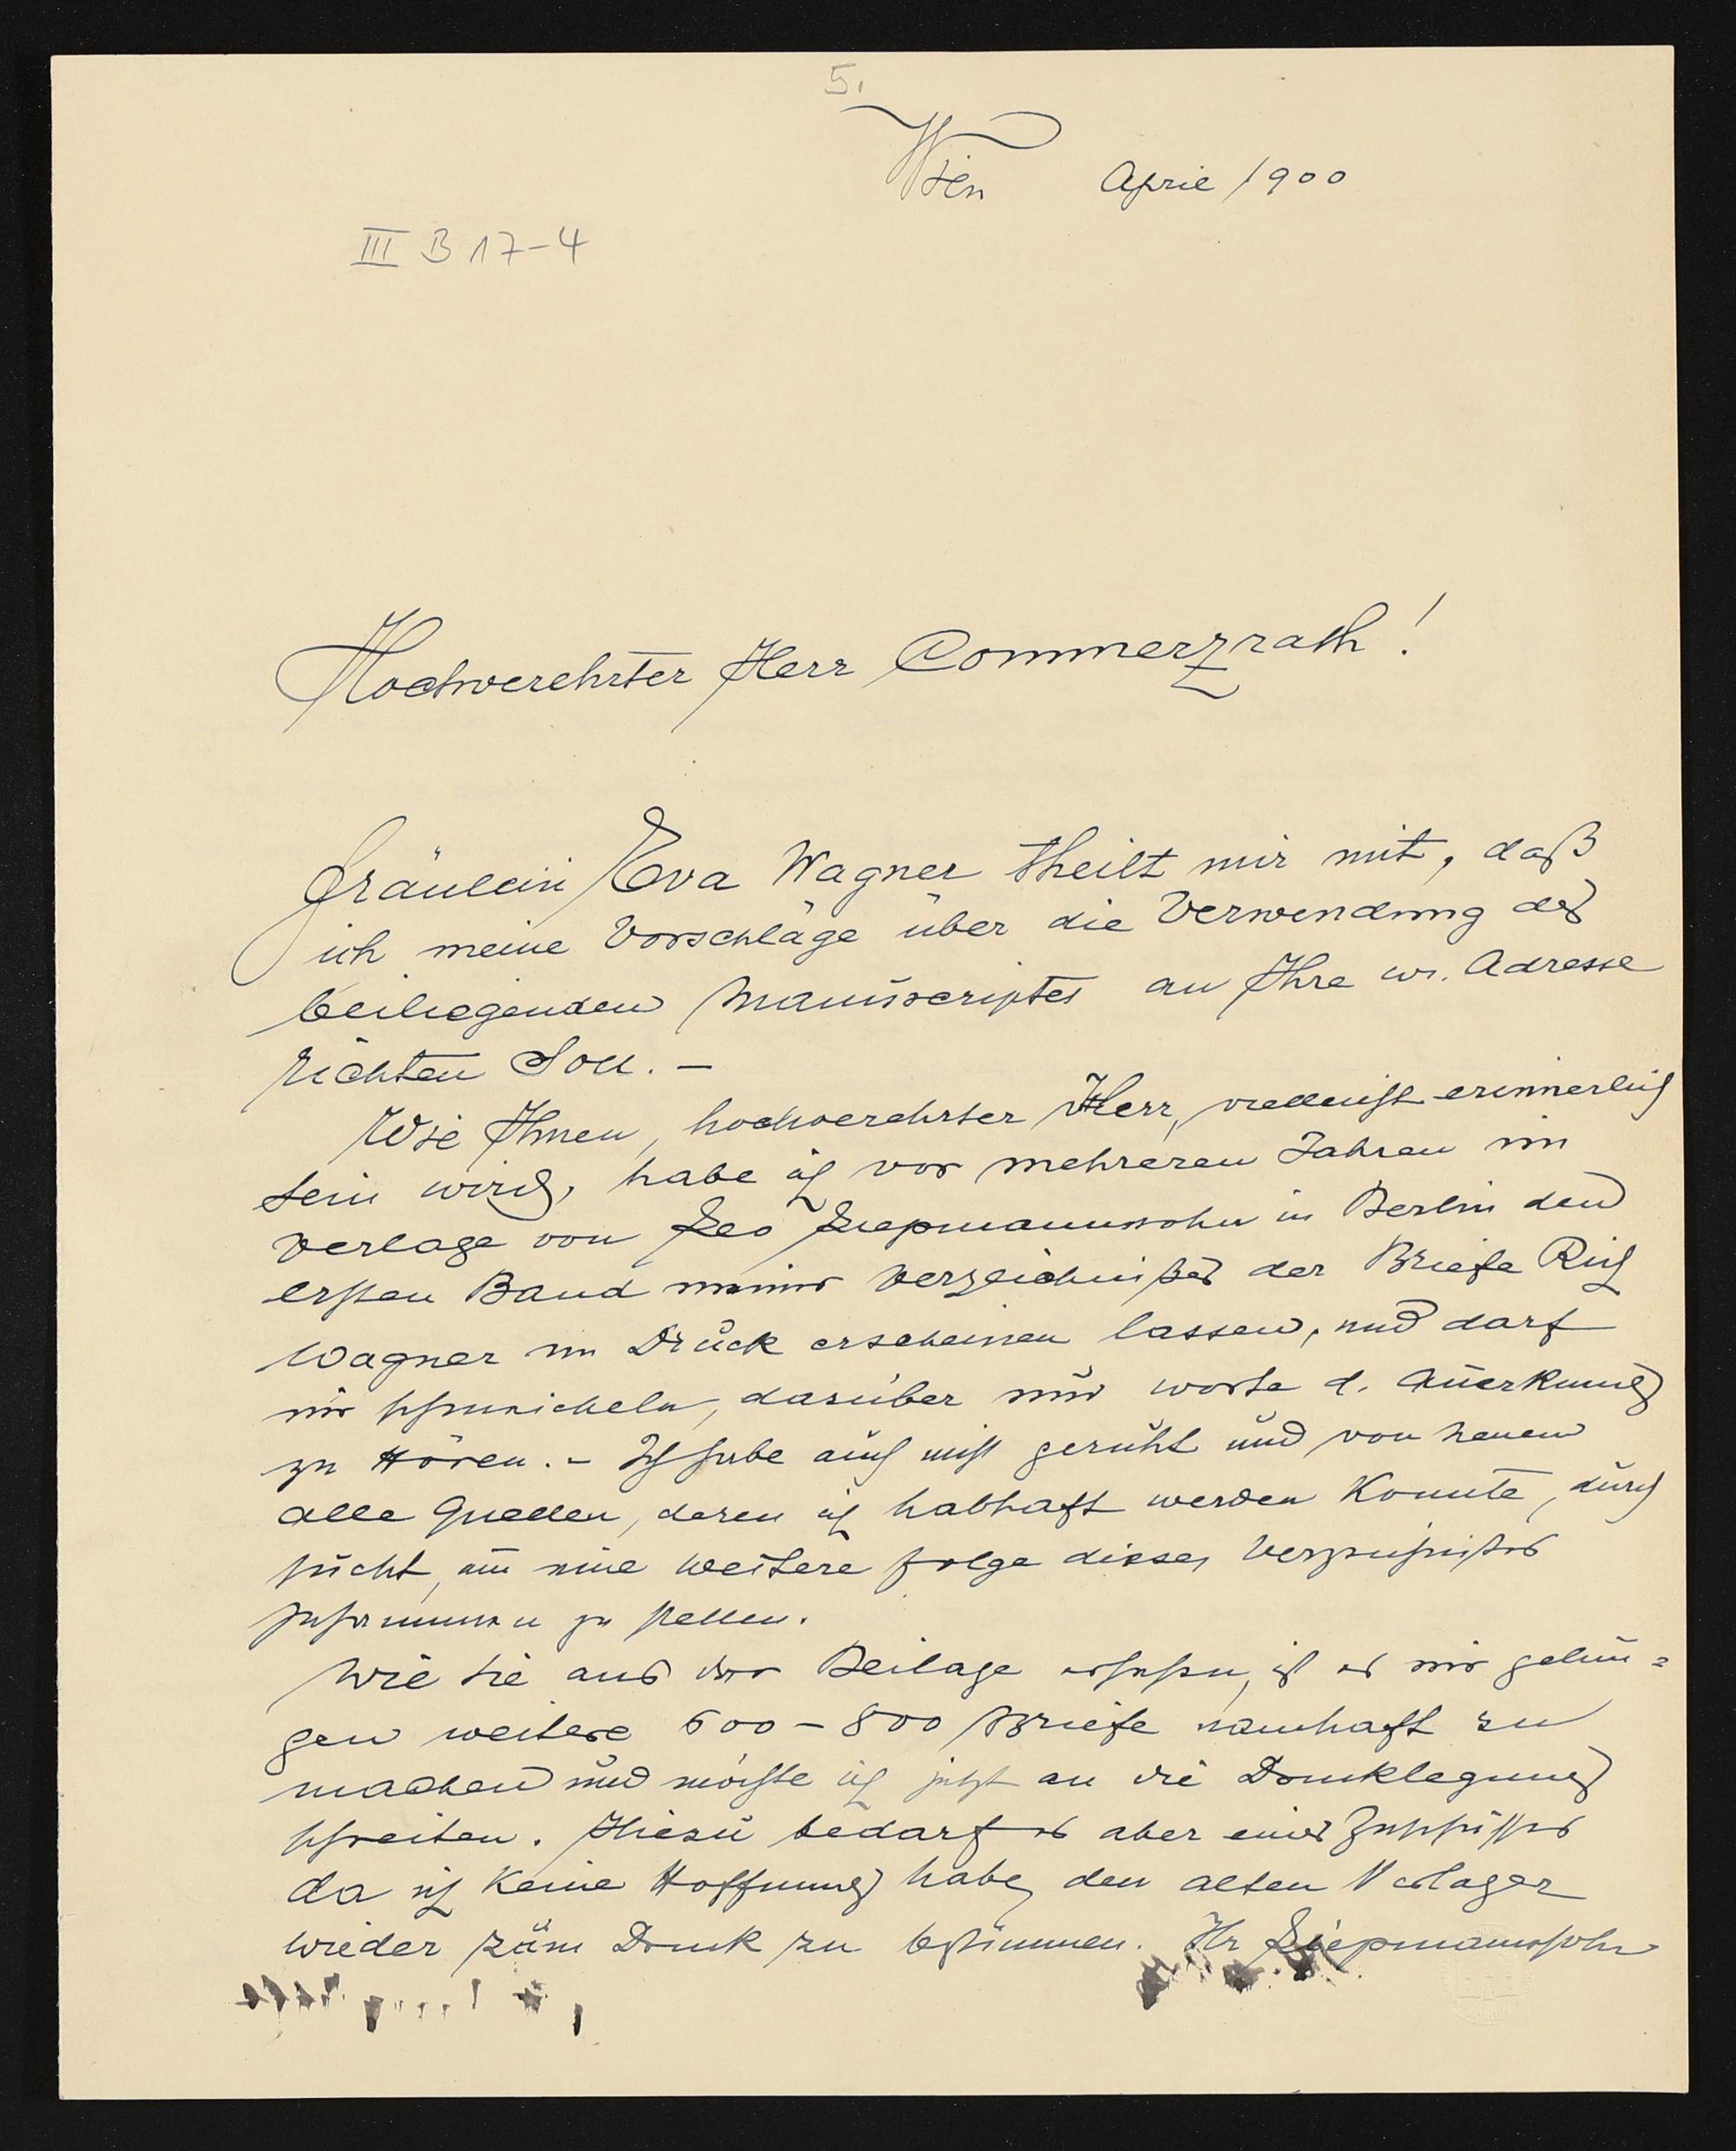 5.
Wien April 1900
III B 17-4
Hochverehrter Herr Commerzrath!
Fräulein Eva Wagner theilt mir mit, daß
ich meine Vorschläge über die Verwendung des
beiliegenden Manuscriptes an Ihre w. Adresse
richten soll. –
Wie Ihnen, hochverehrter Herr, vielleicht erinnerlich
sein wird, habe ich vor mehreren Jahren im
Verlage von Leo Liepmannssohn in Berlin den
ersten Band meines Verzeichnißes der Briefe Rich
Wagner im Druck erscheinen lassen, und darf
mir schmeicheln, darüber nur Worte d. Anerkennung
zu hören. – Ich habe auch nicht geruht und von neuem
alle Quellen, deren ich habhaft werden konnte, durch
sucht, um eine weitere Folge dieses Verzeichnißes
zusammen zu stellen.
Wie Sie aus der Beilage ersehen, ist es mir gelun=
gen weitere 600 – 800 Briefe namhaft zu
machen und möchte ich jetzt an die Drucklegung
schreiten. Hiezu bedarf es aber eines Zuschusses
da ich keine Hoffnung habe, den alten Verlager
wieder zum Druck zu bestimmen. Hr Liepmannssohn